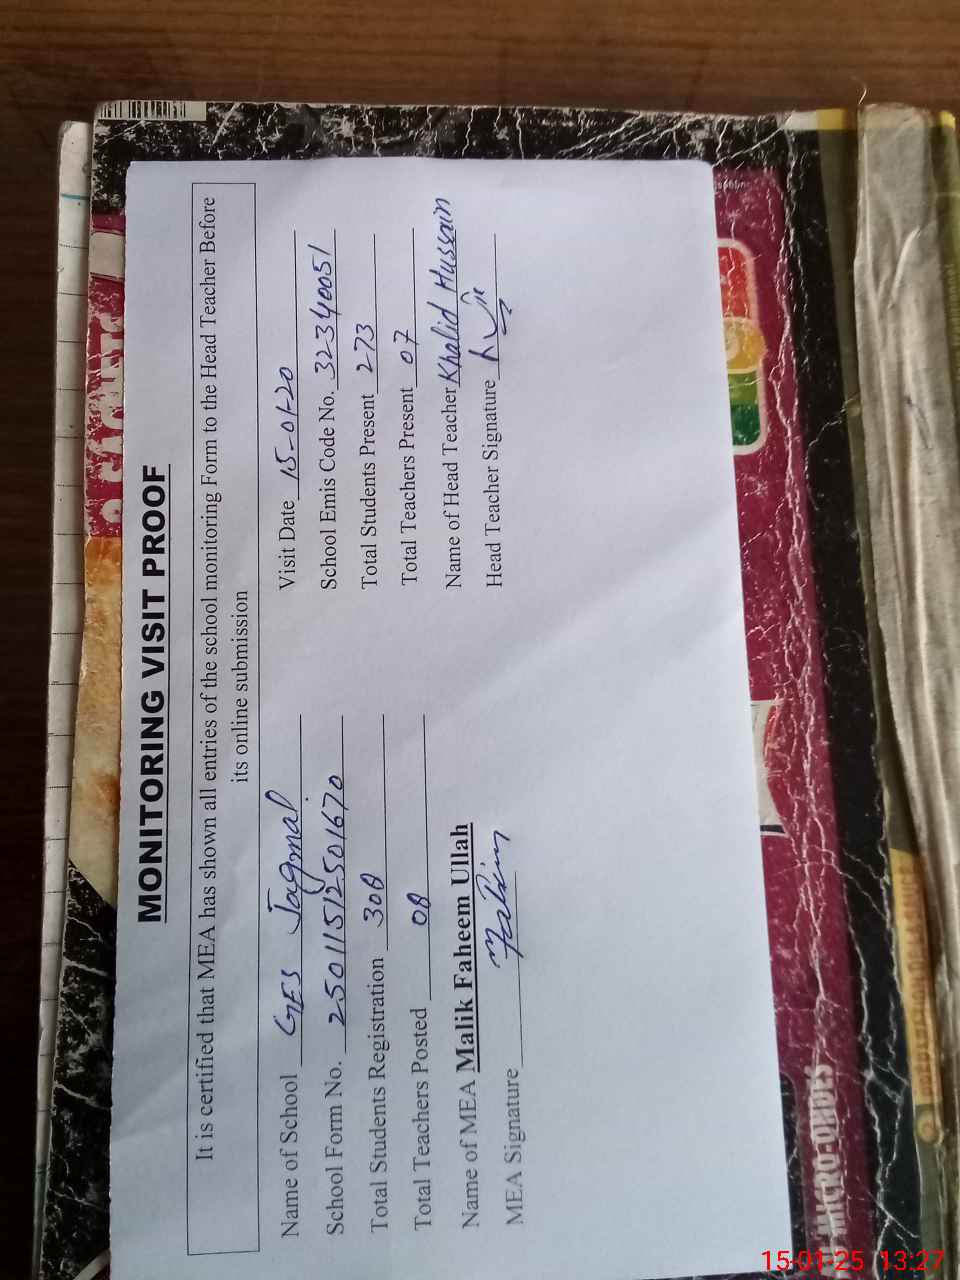 MONITORING VISIT PROOF
It is certified that MEA has shown all entries of the school monitoring Form to the Head Teacher Before
its online submission
Name of School GES Jagmal Visit Date 15-01-20
School Form No. 2501151250 1670 School Emis Code No. 32340051
Total Students Registration 308 Total Students Present 273
Total Teachers Posted 08 Total Teachers Present 07
Name of MEA Malik Faheem Ullah Name of Head Teacher Khalid Hussain
MEA Signature Head Teacher Signature
MICRO-ONDES
15-01-25 13:27